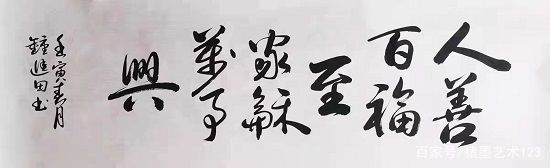 人善
百福
至
家龢
萬事
興
壬寅春月
鐘進田书
百家号/墨艺术123